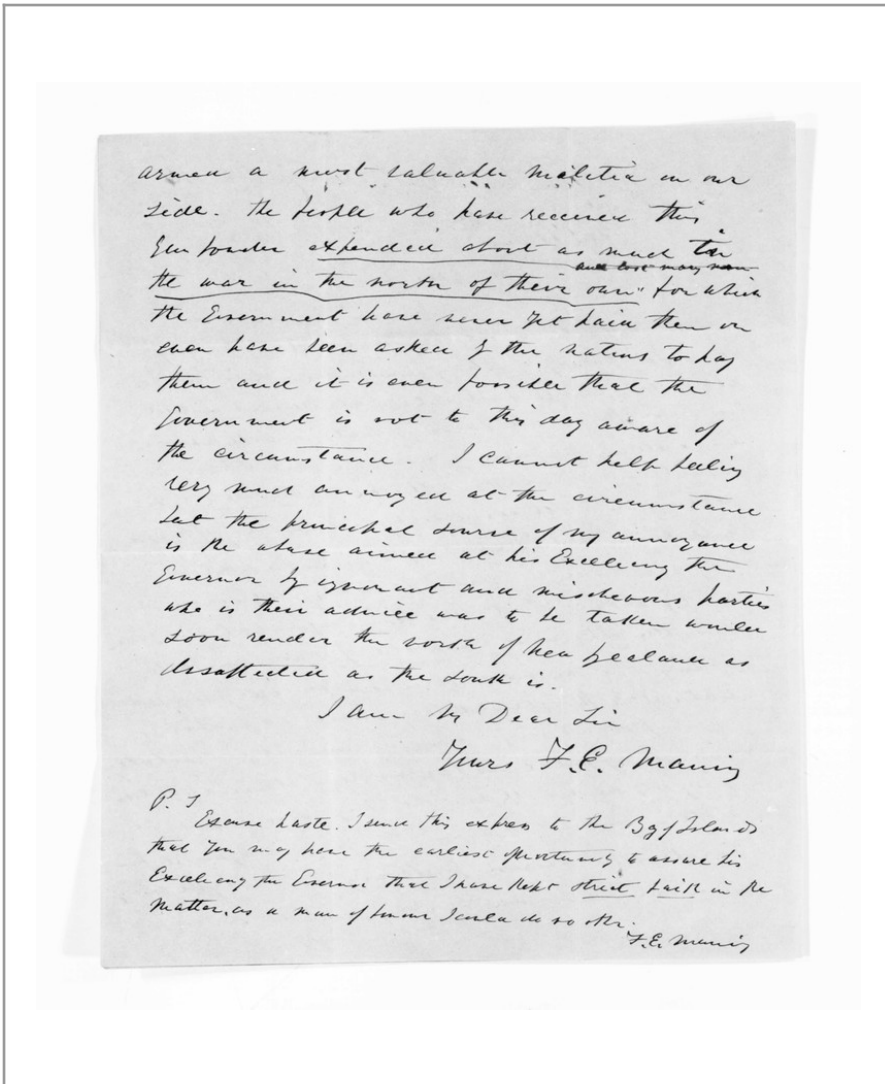 armed a most valuable militia on our
side. the people who have received this
Gun powder expended about as much in
and lost many men
the war in the north of their own" for which
the Government have never yet paid them or
even have been asked by the natives to pay
them and it is even possible that the
Government is not to this day aware of
the circumstance. I cannot help feeling
very much annoyed at the circumstance
but the principal source of my annoyance
is the abuse aimed at his Excellency the
Governor by ignorant and mischevous parties
who is their advice was to be taken would
soon render the north of New Zealand as
disaffected as the South is.
I am My Dear Sir
Yours F. E. Maning
P. S
Excuse haste. I send this express to the Bay of Islands
that you may have the earliest opportunity to assure his
Excellency the Governor that I have kept strict faith in the
matter, as a man of honour I could do no other.
F. E. Maning